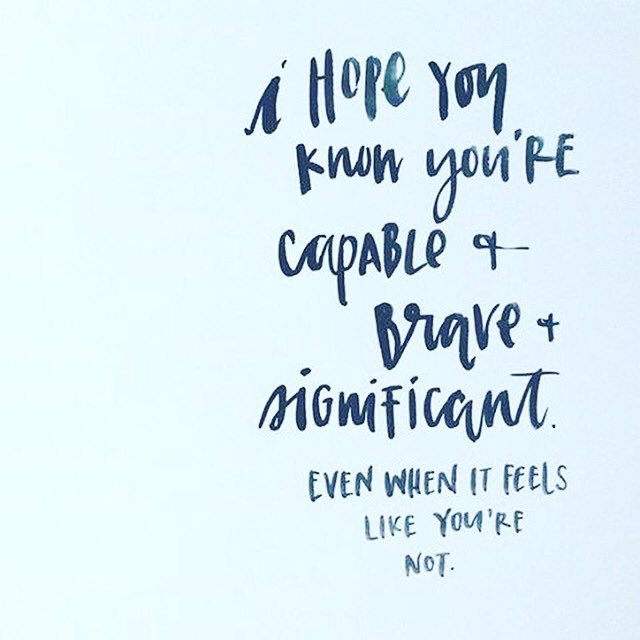 i HOPE YOU
KNOW YOU'RE
CAPABLE &
BRAVE +
SIGNIFICANT.
EVEN WHEN IT FEELS
LIKE YOU'RE
NOT.